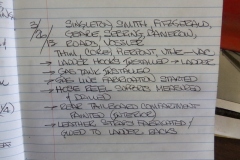 3/ SINGLETON, SMITH, FITZGERALD,
GEORGE, SEBRING, DAMERON,
13 ROADS, VOSSLER
→ LADDER HOOKS INSTALLED → LADDER
→ GAS TANK INSTALLED
→ GAS LINE FABRICATION STARTED
→ HOSE REEL SUPPORTS MEASURED
& DRILLED
→ REAR TAILBOARD COMPARTMENT
PAINTED (INTERIOR)
→ LEATHER STRAPS FABRICATED /
GLUED TO LADDER RACKS